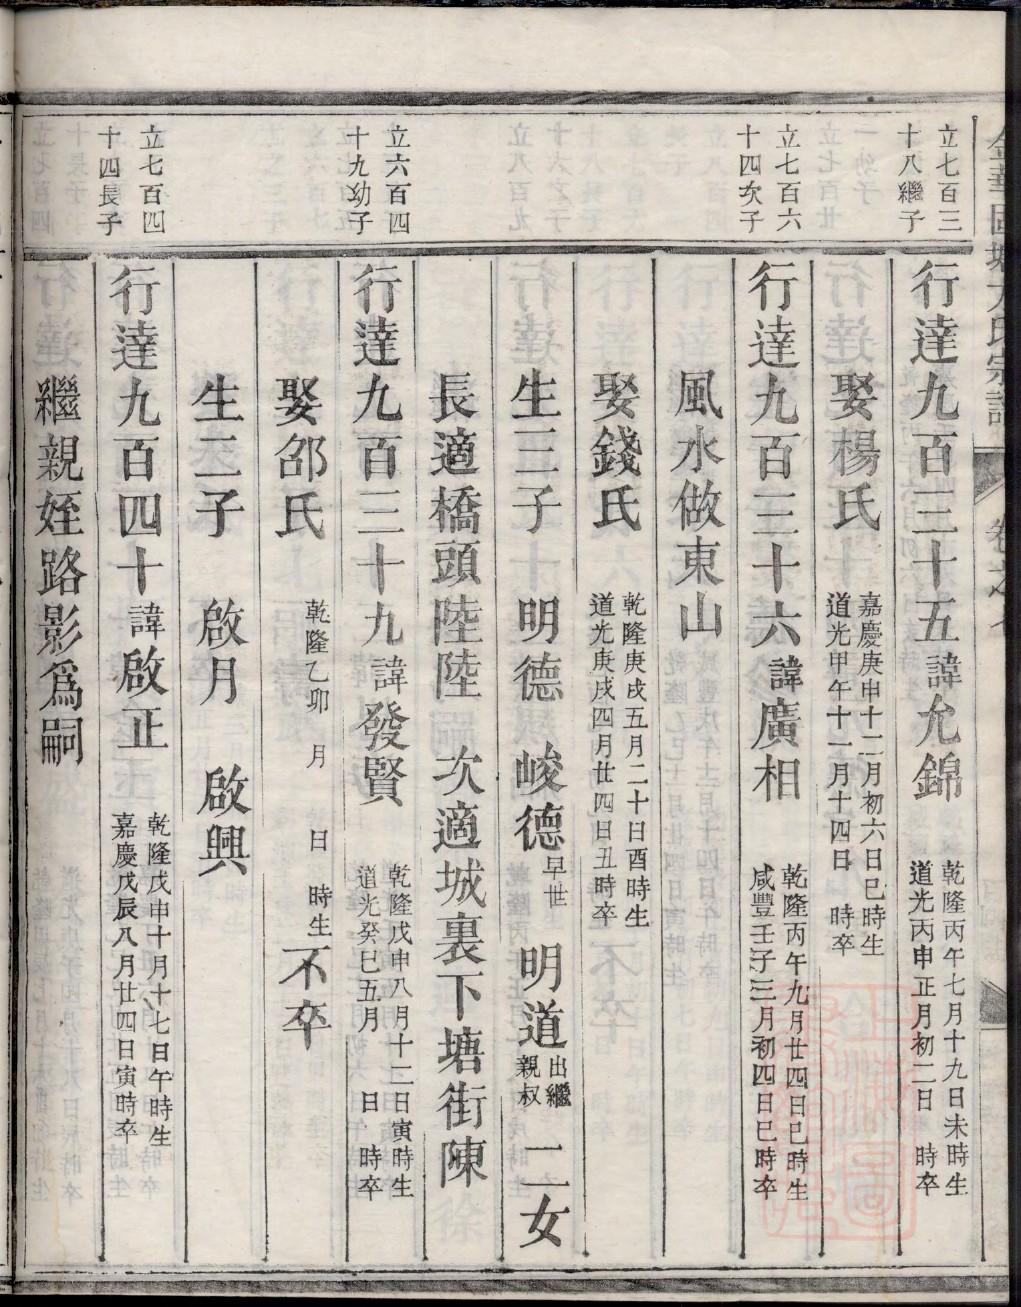 立七百三
十八繼子
行達九百三十五諱允錦 乾隆丙午七月十九日未時生 道光丙申正月初二日 時卒
娶楊氏 嘉慶庚申十二月初六日巳時生 道光甲午十一月十四日 時卒
立七百六
十四次子
行達九百三十六諱廣相 乾隆丙午九月廿四日巳時生 咸豐壬子三月初四日巳時卒
風水做東山
娶錢氏 乾隆庚戌五月二十日酉時生 道光庚戌四月廿四日丑時卒
生三子 明德 峻德早世 明道出繼親叔 二女
長適橋頭陸陸 次適城裏下塘街陳
立六百四
十九幼子
行達九百三十九諱發賢 乾隆戊申八月十二日寅時生 道光癸巳五月 日 時卒
娶邵氏 乾隆乙卯 月 日 時生 不卒
生二子 啟月 啟興
立七百四
十四長子
行達九百四十諱啟正 乾隆戊申十月十七日午時生 嘉慶戊辰八月廿四日寅時卒
繼親姪路影爲嗣